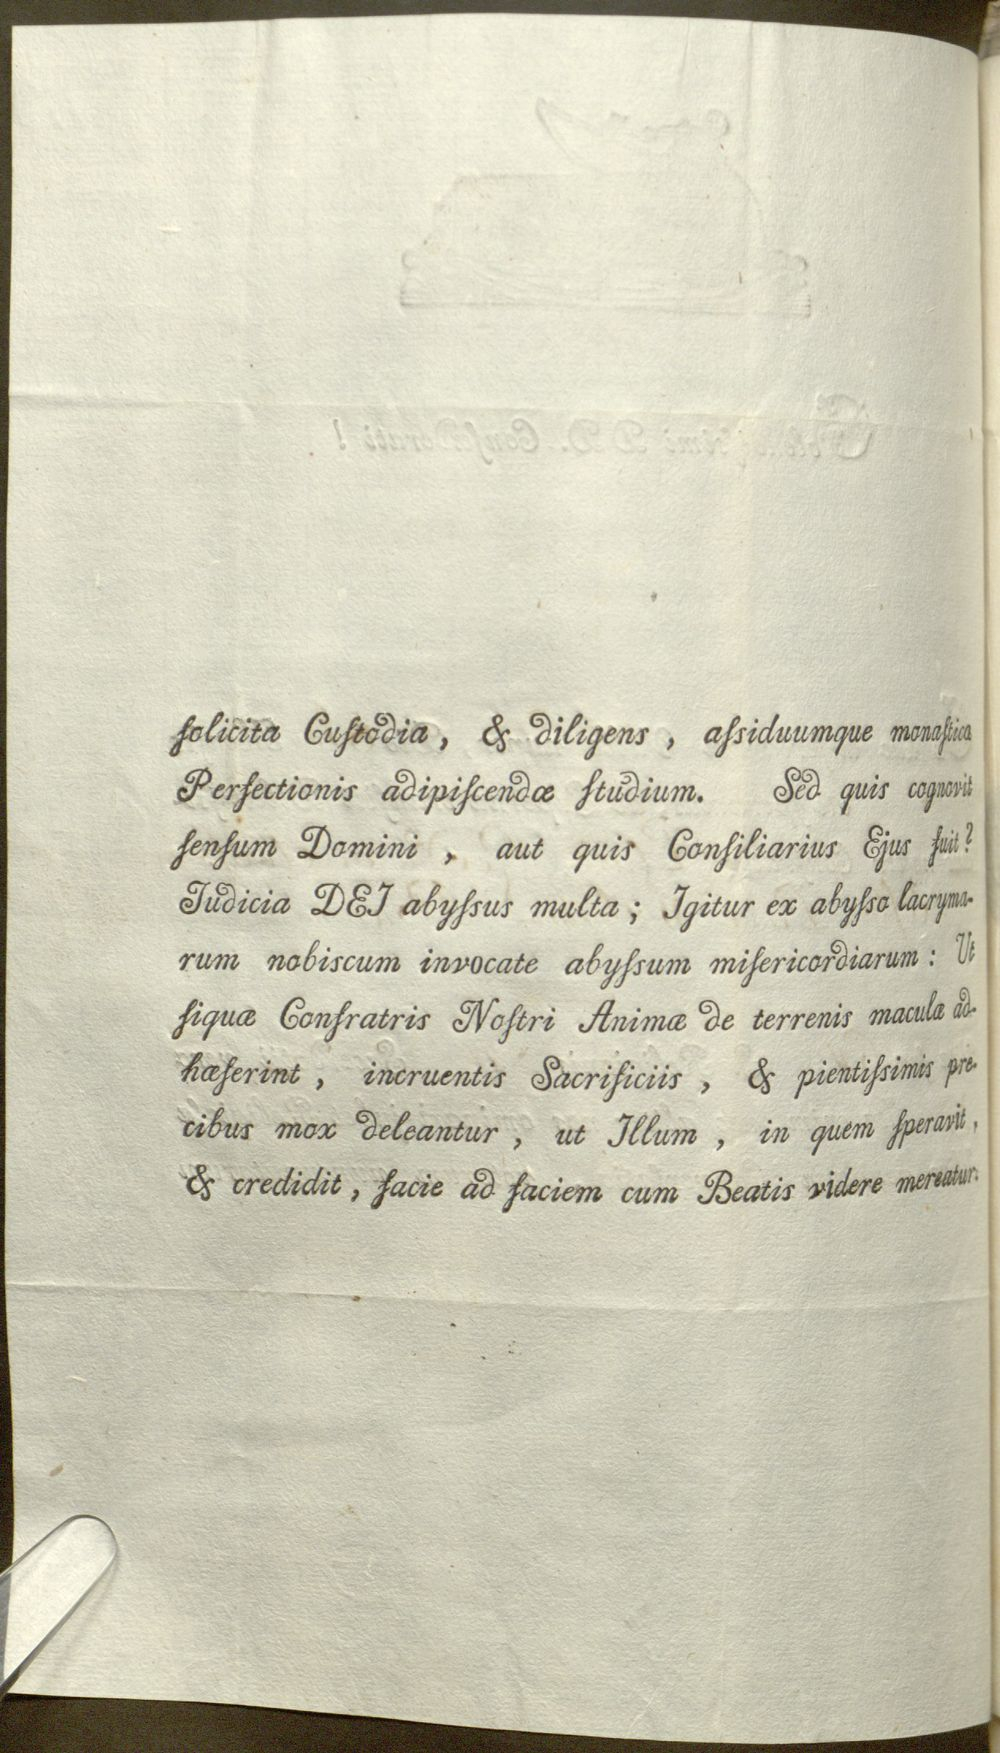 ſolicita Cuſtodia, & diligens, aſsiduumque monaſticæ
Perfectionis adipiſcendæ ſtudium. Sed quis cognovit
ſenſum Domini, aut quis Conſiliarius Ejus fuit?
Judicia DEI abyſsus multa; Igitur ex abyſso lacryma-
rum nobiscum invocate abyſsum miſericordiarum: Ut
ſiquæ Confratris Noſtri Animæ de terrenis maculæ ad-
hæſerint, incruentis Sacrificiis, & pientiſsimis pre-
cibus mox deleantur, ut Illum, in quem ſperavit,
& credidit, facie ad faciem cum Beatis videre mereatur.